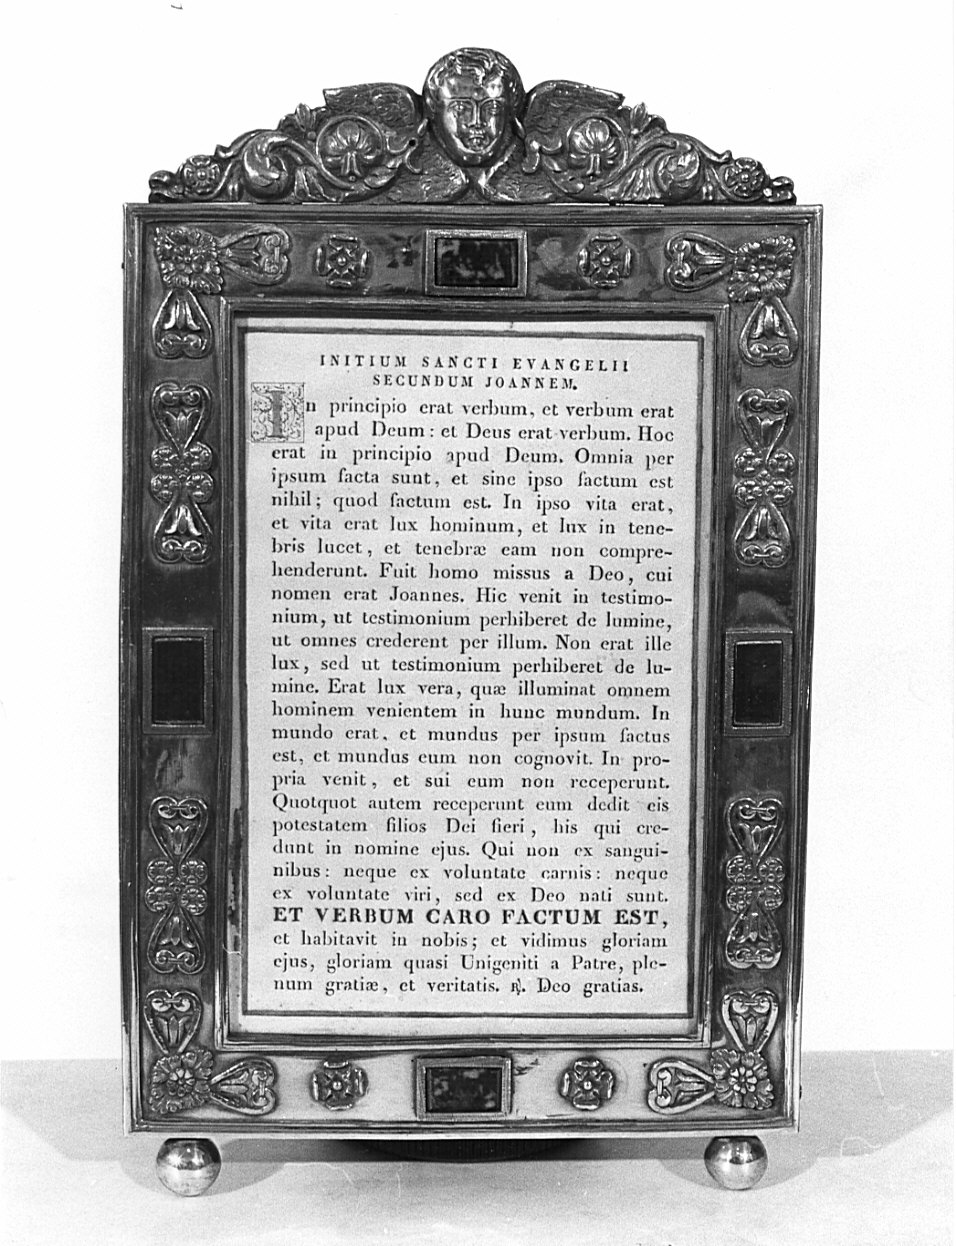 INITIUM SANCTI EVANGELII
SECUNDUM JOANNEM.
In principio erat verbum, et verbum erat
apud Deum: et Deus erat verbum. Hoc
erat in principio apud Deum. Omnia per
ipsum facta sunt, et sine ipso factum est
nihil; quod factum est. In ipso vita erat,
et vita erat lux hominum, et lux in tene-
bris lucet, et tenebræ eam non compre-
henderunt. Fuit homo missus a Deo, cui
nomen erat Joannes. Hic venit in testimo-
nium, ut testimonium perhiberet de lumine,
ut omnes crederent per illum. Non erat ille
lux, sed ut testimonium perhiberet de lu-
mine. Erat lux vera, quæ illuminat omnem
hominem venientem in hunc mundum. In
mundo erat, et mundus per ipsum factus
est, et mundus eum non cognovit. In pro-
pria venit, et sui eum non receperunt.
Quotquot autem receperunt eum dedit eis
potestatem filios Dei fieri, his qui cre-
dunt in nomine ejus. Qui non ex sangui-
nibus: neque ex voluntate carnis: neque
ex voluntate viri, sed ex Deo nati sunt.
ET VERBUM CARO FACTUM EST,
et habitavit in nobis; et vidimus gloriam
ejus, gloriam quasi Unigeniti a Patre, ple-
num gratiæ, et veritatis. ℟. Deo gratias.